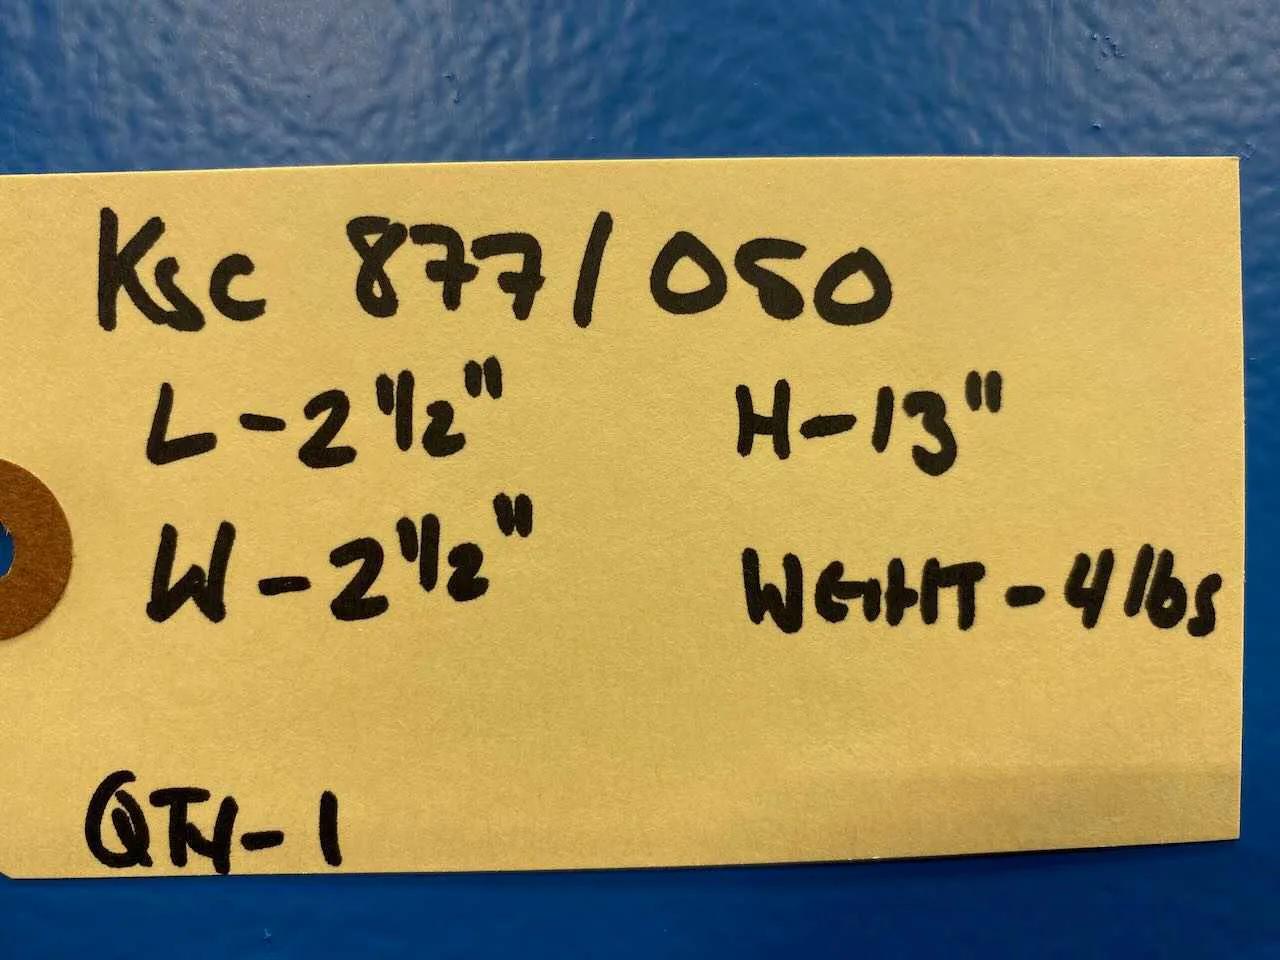 Ksc 877/050
L-2 1/2" H-13"
W-2 1/2" WEIHT-4 lbs
QTY-1